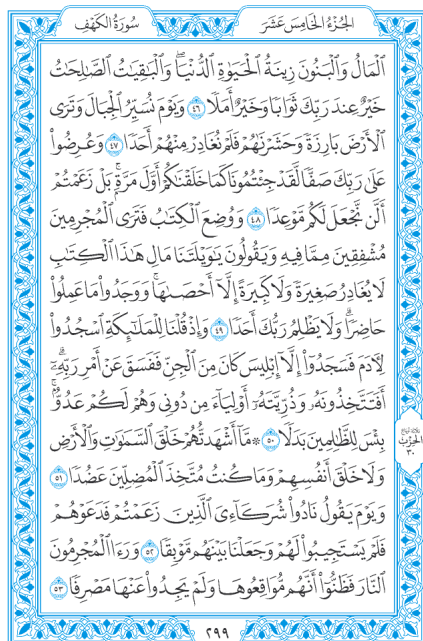 الجزء الخامس عشر
سورة الكهف
ٱلْمَالُ وَٱلْبَنُونَ زِينَةُ ٱلْحَيَوٰةِ ٱلدُّنْيَا ۖ وَٱلْبَٰقِيَٰتُ ٱلصَّٰلِحَٰتُ
خَيْرٌ عِندَ رَبِّكَ ثَوَابًا وَخَيْرٌ أَمَلًا ٤٦ وَيَوْمَ نُسَيِّرُ ٱلْجِبَالَ وَتَرَى
ٱلْأَرْضَ بَارِزَةً وَحَشَرْنَٰهُمْ فَلَمْ نُغَادِرْ مِنْهُمْ أَحَدًا ٤٧ وَعُرِضُوا۟
عَلَىٰ رَبِّكَ صَفًّا لَّقَدْ جِئْتُمُونَا كَمَا خَلَقْنَٰكُمْ أَوَّلَ مَرَّةٍۭ ۚ بَلْ زَعَمْتُمْ
أَلَّن نَّجْعَلَ لَكُم مَّوْعِدًا ٤٨ وَوُضِعَ ٱلْكِتَٰبُ فَتَرَى ٱلْمُجْرِمِينَ
مُشْفِقِينَ مِمَّا فِيهِ وَيَقُولُونَ يَٰوَيْلَتَنَا مَالِ هَٰذَا ٱلْكِتَٰبِ
لَا يُغَادِرُ صَغِيرَةً وَلَا كَبِيرَةً إِلَّآ أَحْصَىٰهَا ۚ وَوَجَدُوا۟ مَا عَمِلُوا۟
حَاضِرًا ۗ وَلَا يَظْلِمُ رَبُّكَ أَحَدًا ٤٩ وَإِذْ قُلْنَا لِلْمَلَٰٓئِكَةِ ٱسْجُدُوا۟
لِءَادَمَ فَسَجَدُوٓا۟ إِلَّآ إِبْلِيسَ كَانَ مِنَ ٱلْجِنِّ فَفَسَقَ عَنْ أَمْرِ رَبِّهِۦٓ ۗ
أَفَتَتَّخِذُونَهُۥ وَذُرِّيَّتَهُۥٓ أَوْلِيَآءَ مِن دُونِى وَهُمْ لَكُمْ عَدُوٌّۢ ۚ
بِئْسَ لِلظَّٰلِمِينَ بَدَلًا ٥٠ ۞ مَّآ أَشْهَدتُّهُمْ خَلْقَ ٱلسَّمَٰوَٰتِ وَٱلْأَرْضِ
وَلَا خَلْقَ أَنفُسِهِمْ وَمَا كُنتُ مُتَّخِذَ ٱلْمُضِلِّينَ عَضُدًا ٥١
وَيَوْمَ يَقُولُ نَادُوا۟ شُرَكَآءِىَ ٱلَّذِينَ زَعَمْتُمْ فَدَعَوْهُمْ
فَلَمْ يَسْتَجِيبُوا۟ لَهُمْ وَجَعَلْنَا بَيْنَهُم مَّوْبِقًا ٥٢ وَرَءَا ٱلْمُجْرِمُونَ
ٱلنَّارَ فَظَنُّوٓا۟ أَنَّهُم مُّوَاقِعُوهَا وَلَمْ يَجِدُوا۟ عَنْهَا مَصْرِفًا ٥٣
الحزب
٣٠
٢٩٩